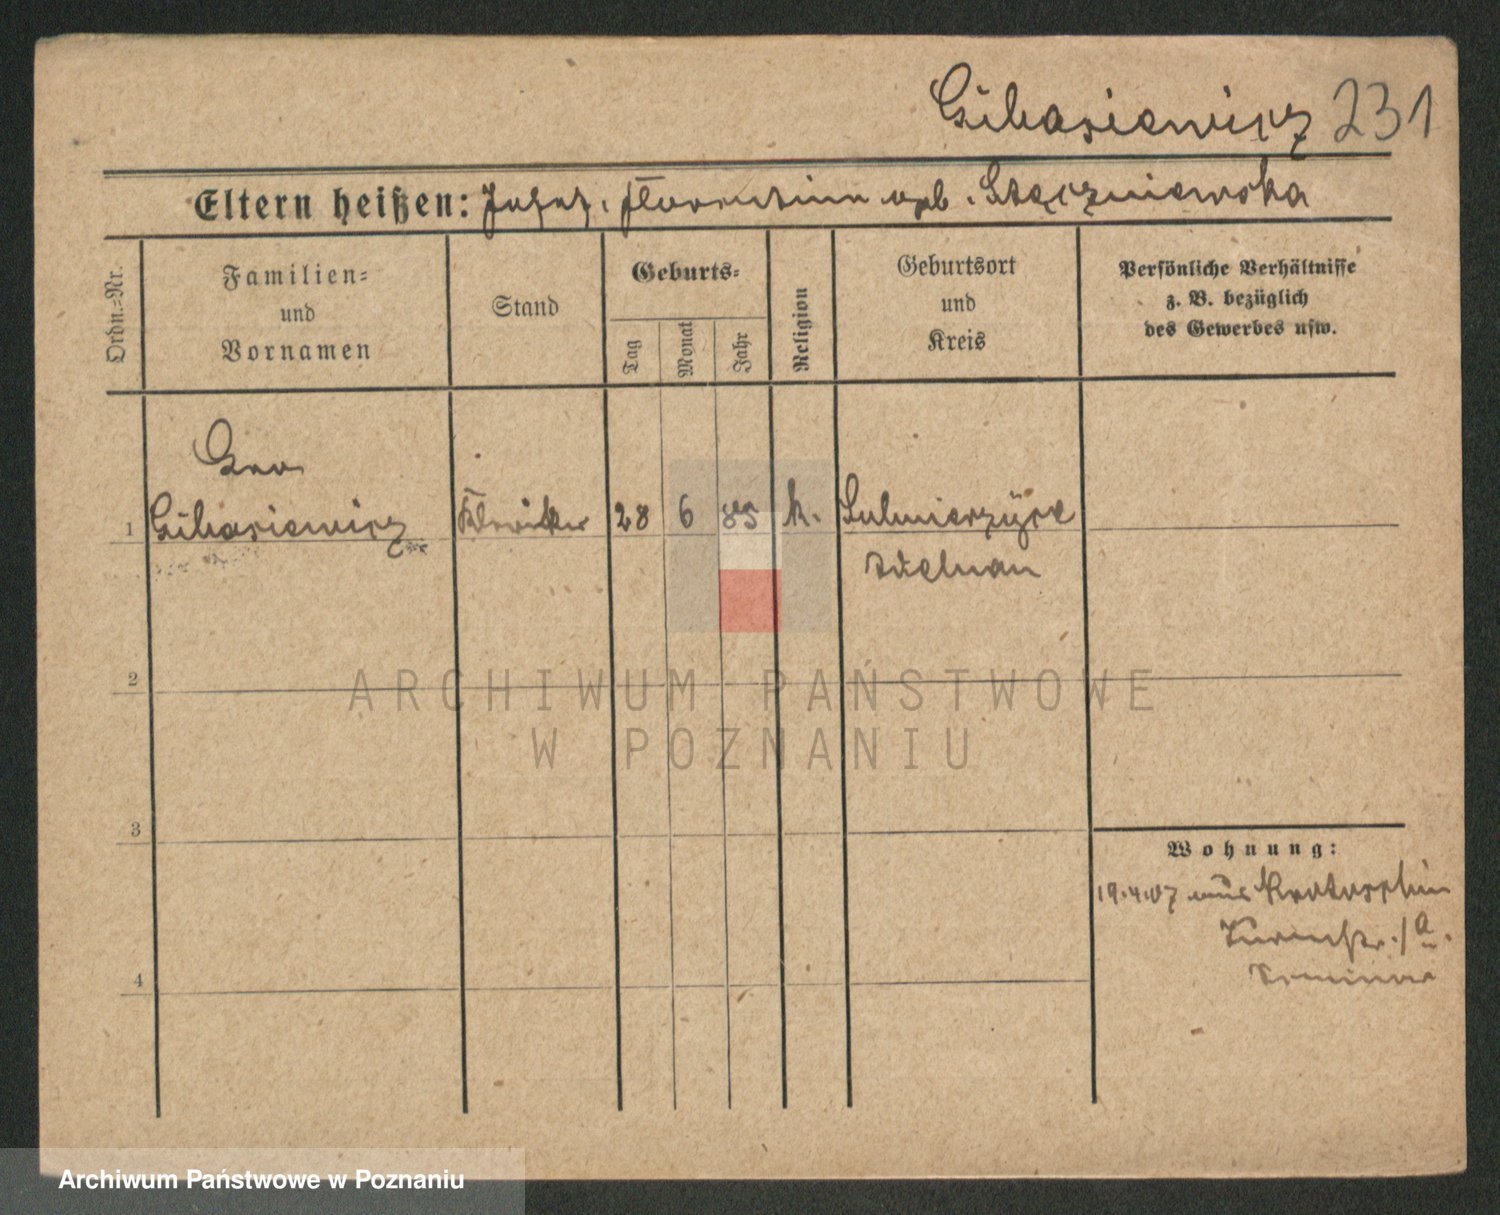 Gibasiewicz 231
Eltern heißen: Josef, Florentine geb. Szczęsniewska
Ordn.=Nr.
Familien=
und
Vornamen
Stand
Geburts=
Tag
Monat
Jahr
Religion
Geburtsort
und
Kreis
Persönliche Verhältnisse
z. B. bezüglich
des Gewerbes usw.
Leo
1 Gibasiewicz Kleriker 28 6 85 k. Sulmierzyce
Adelnau
2
3
4
Wohnung:
19.4.07 aus Krotoschin
Turmstr. 1
Seminar
ARCHIWUM PAŃSTWOWE
W POZNANIU
Archiwum Państwowe w Poznaniu